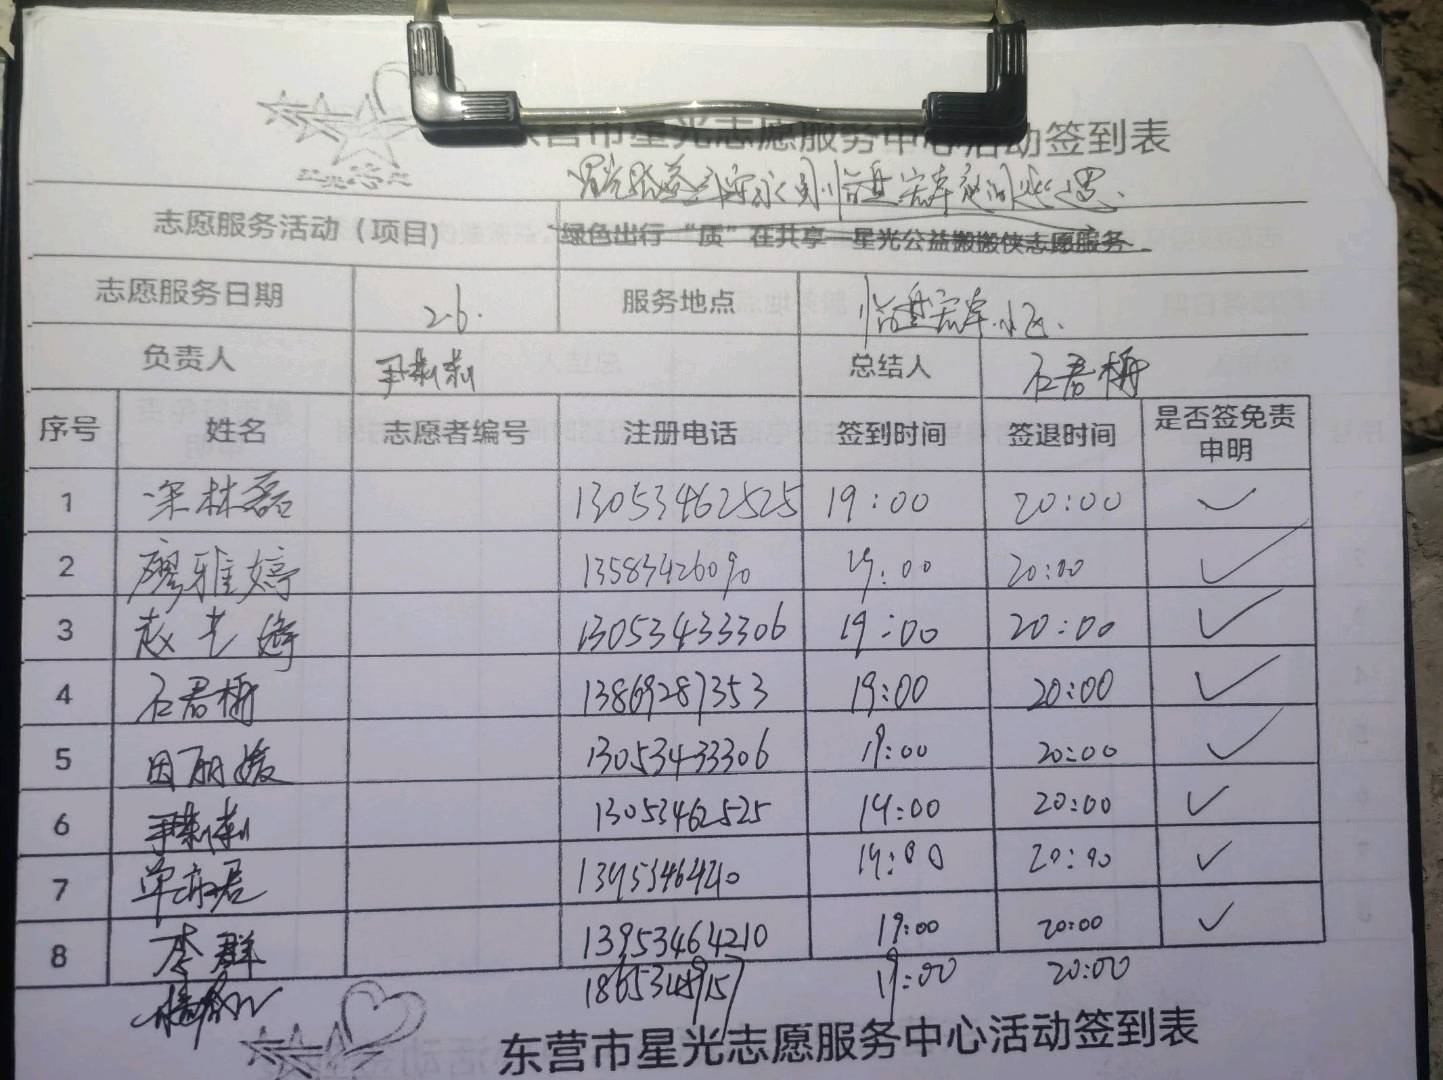 东营市星光志愿服务中心活动签到表
志愿服务活动（项目） 绿色出行 “质”在共享 星光公益搬搬侠志愿服务
志愿服务日期 2.6. 服务地点 临盘宏岸小区.
负责人 尹莉莉 总结人 石君栅
序号 姓名 志愿者编号 注册电话 签到时间 签退时间 是否签免责申明
1 林磊 13053462525 19:00 20:00 ✓
2 廖雅婷 13583426090 19:00 20:00 ✓
3 赵 13053433306 19:00 20:00 ✓
4 石君栅 13869287353 19:00 20:00 ✓
5 田丽媛 13053433306 19:00 20:00 ✓
6 尹莉莉 13053462525 19:00 20:00 ✓
7 单 19:00 20:00 ✓
8 李群 13953464210 19:00 20:00 ✓
19:00 20:00
东营市星光志愿服务中心活动签到表